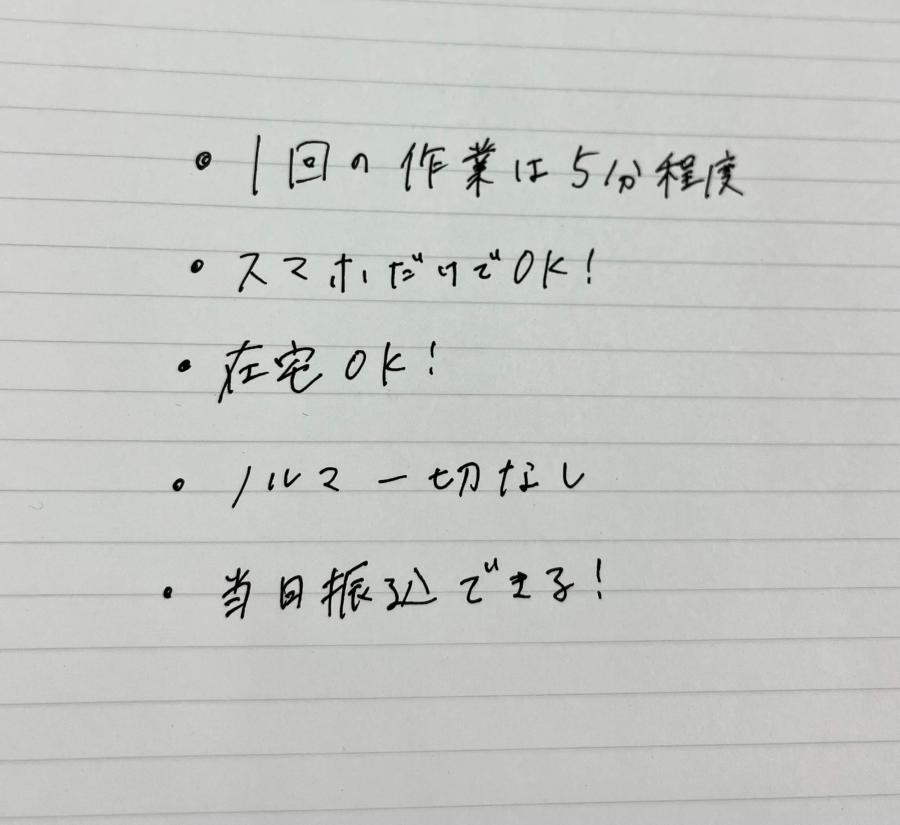 • 1回の作業は5分程度
• スマホだけでOK!
• 在宅OK!
• ノルマ一切なし
• 当日振込できる!